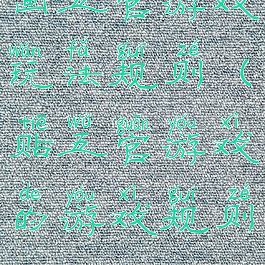 wán fǎ guī zé
玩法规则（
tiē wǔ guān yóu xì
贴五官游戏
de yóu xì guī zé
的游戏规则